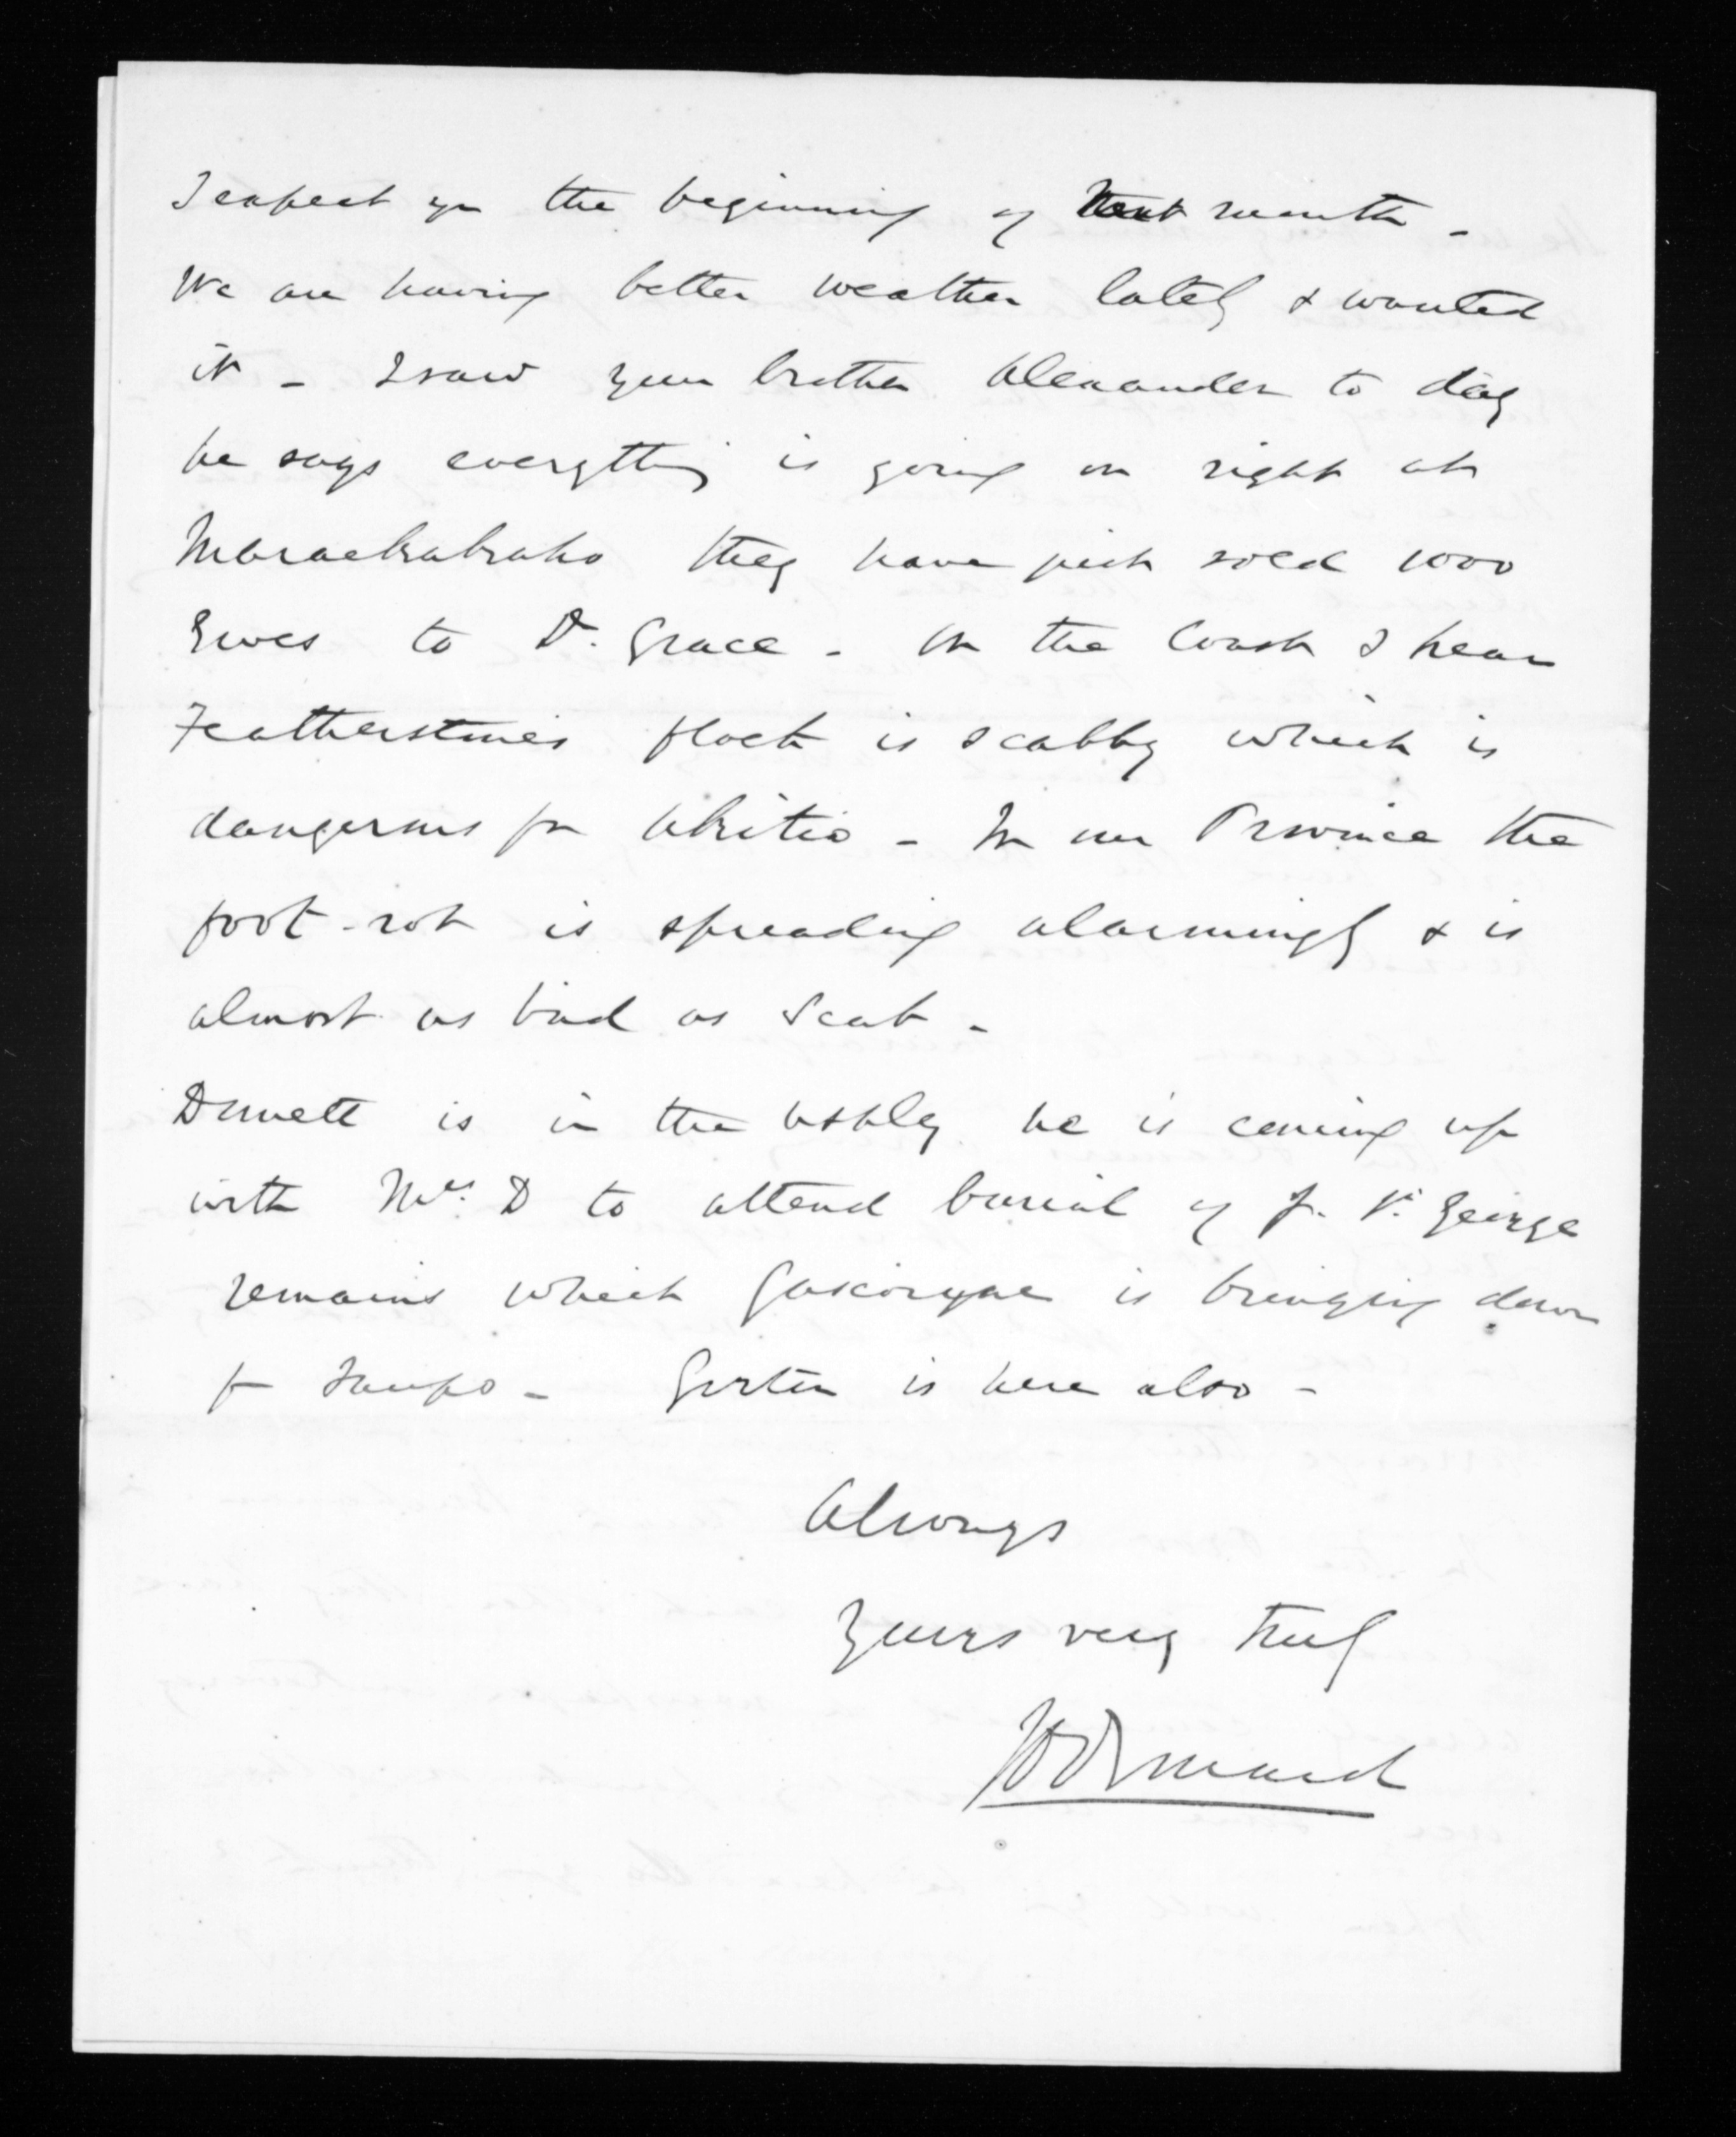 I expect you the beginning of next month -
We are having better weather lately & wanted
it - I saw your brother Alexander to day
he says everything is going on right at
Maraekakaho they have just sold 1000
Ewes to Dr. Grace - On the Coast I hear
Featherstones flock is scabby which is
dangerous for Akitio - In our Province the
foot-rot is spreading alarmingly & is
almost as bad as Scab -
Dunett is in the Ashley he is coming up
with Mrs. D to attend burial of J. St. George
remains which Gascoigne is bringing down
fr Taupo - is here also -
Always
Yours very truly
JD Ormond